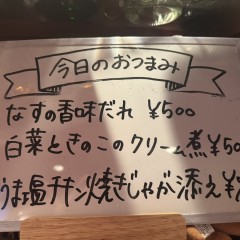 今日のおつまみ
なすの香味だれ ¥500
白菜ときのこのクリーム煮 ¥5
うま塩チキン焼きじゃが添え ¥